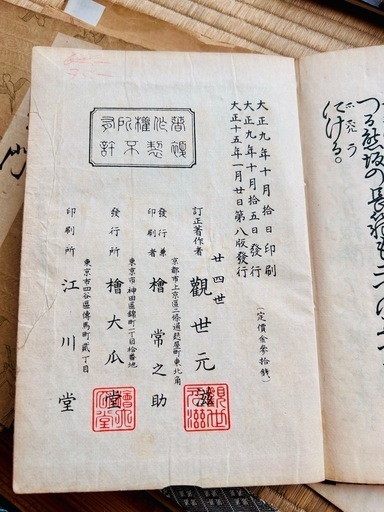 大正九年十月拾日印刷
大正九年十月拾五日發行
大正十五年一月廿日第八版發行
(定價金參拾錢)
著作權所有
不許
廿四世
訂正著作者
觀世元滋
京都市上京區二條通麩屋町東北角
發行兼印刷者
檜常之助
東京市神田區錦町二丁目拾番地
發行所
檜大瓜堂
東京市四谷區傳馬町貳丁目
印刷所
江川堂
つる熊坂の長範も二
てける。